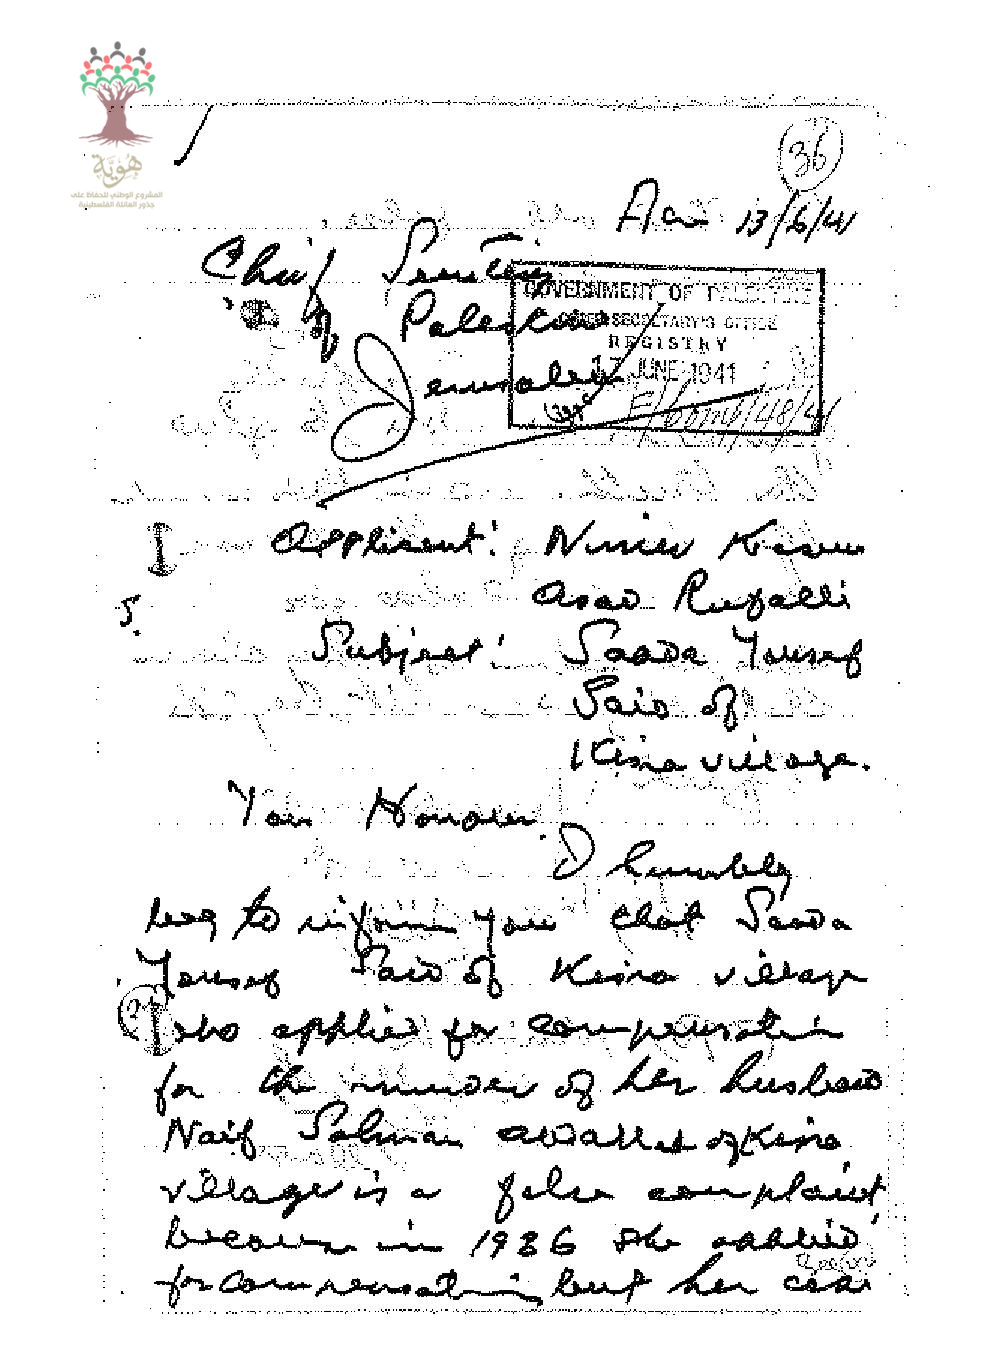 هُوِيَّة
المشروع الوطني للحفاظ على
جذور العائلة الفلسطينية
36
13/6/41
Chief Secretary
of Palestine
Jerusalem
GOVERNMENT OF PALESTINE
CHIEF SECRETARY'S OFFICE
REGISTRY
17 JUNE 1941
5.
Applicant: Nimer Kasem
Asad
Subject: Saada Yousef
Said of
Kisra village.
Your Honour.
I humbly
beg to inform you that Saada
Yousef Said of Kisra village
who applied for compensation
for the murder of her husband
Naif Salman of Kisra
village is a false complaint
because in 1936 she applied
for compensation, but her case